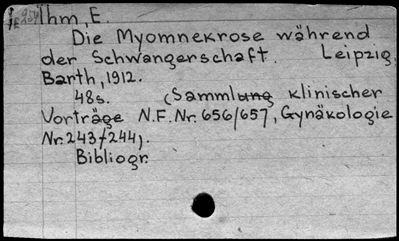 Ihm, E.
Die Myomnekrose während
der Schwangerschaft. Leipzig,
Barth, 1912.
48s. (Sammlung klinischer
Vorträge N.F. Nr. 656/657, Gynäkologie
Nr. 243/244).
Bibliogr.